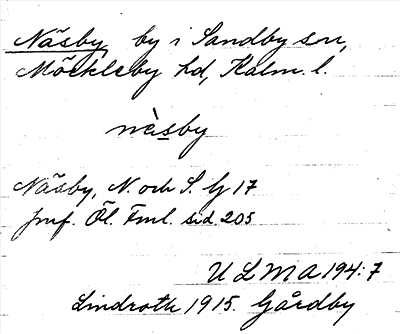 Näsby by i Sandby sn,
Möckleby hd, Kalm. l.
nè̀sby
Näsby, N. och S. G 17
jmf. Öl. Fml. sid. 205
ULMA 194:7
Lindroth 1915. Gårdby